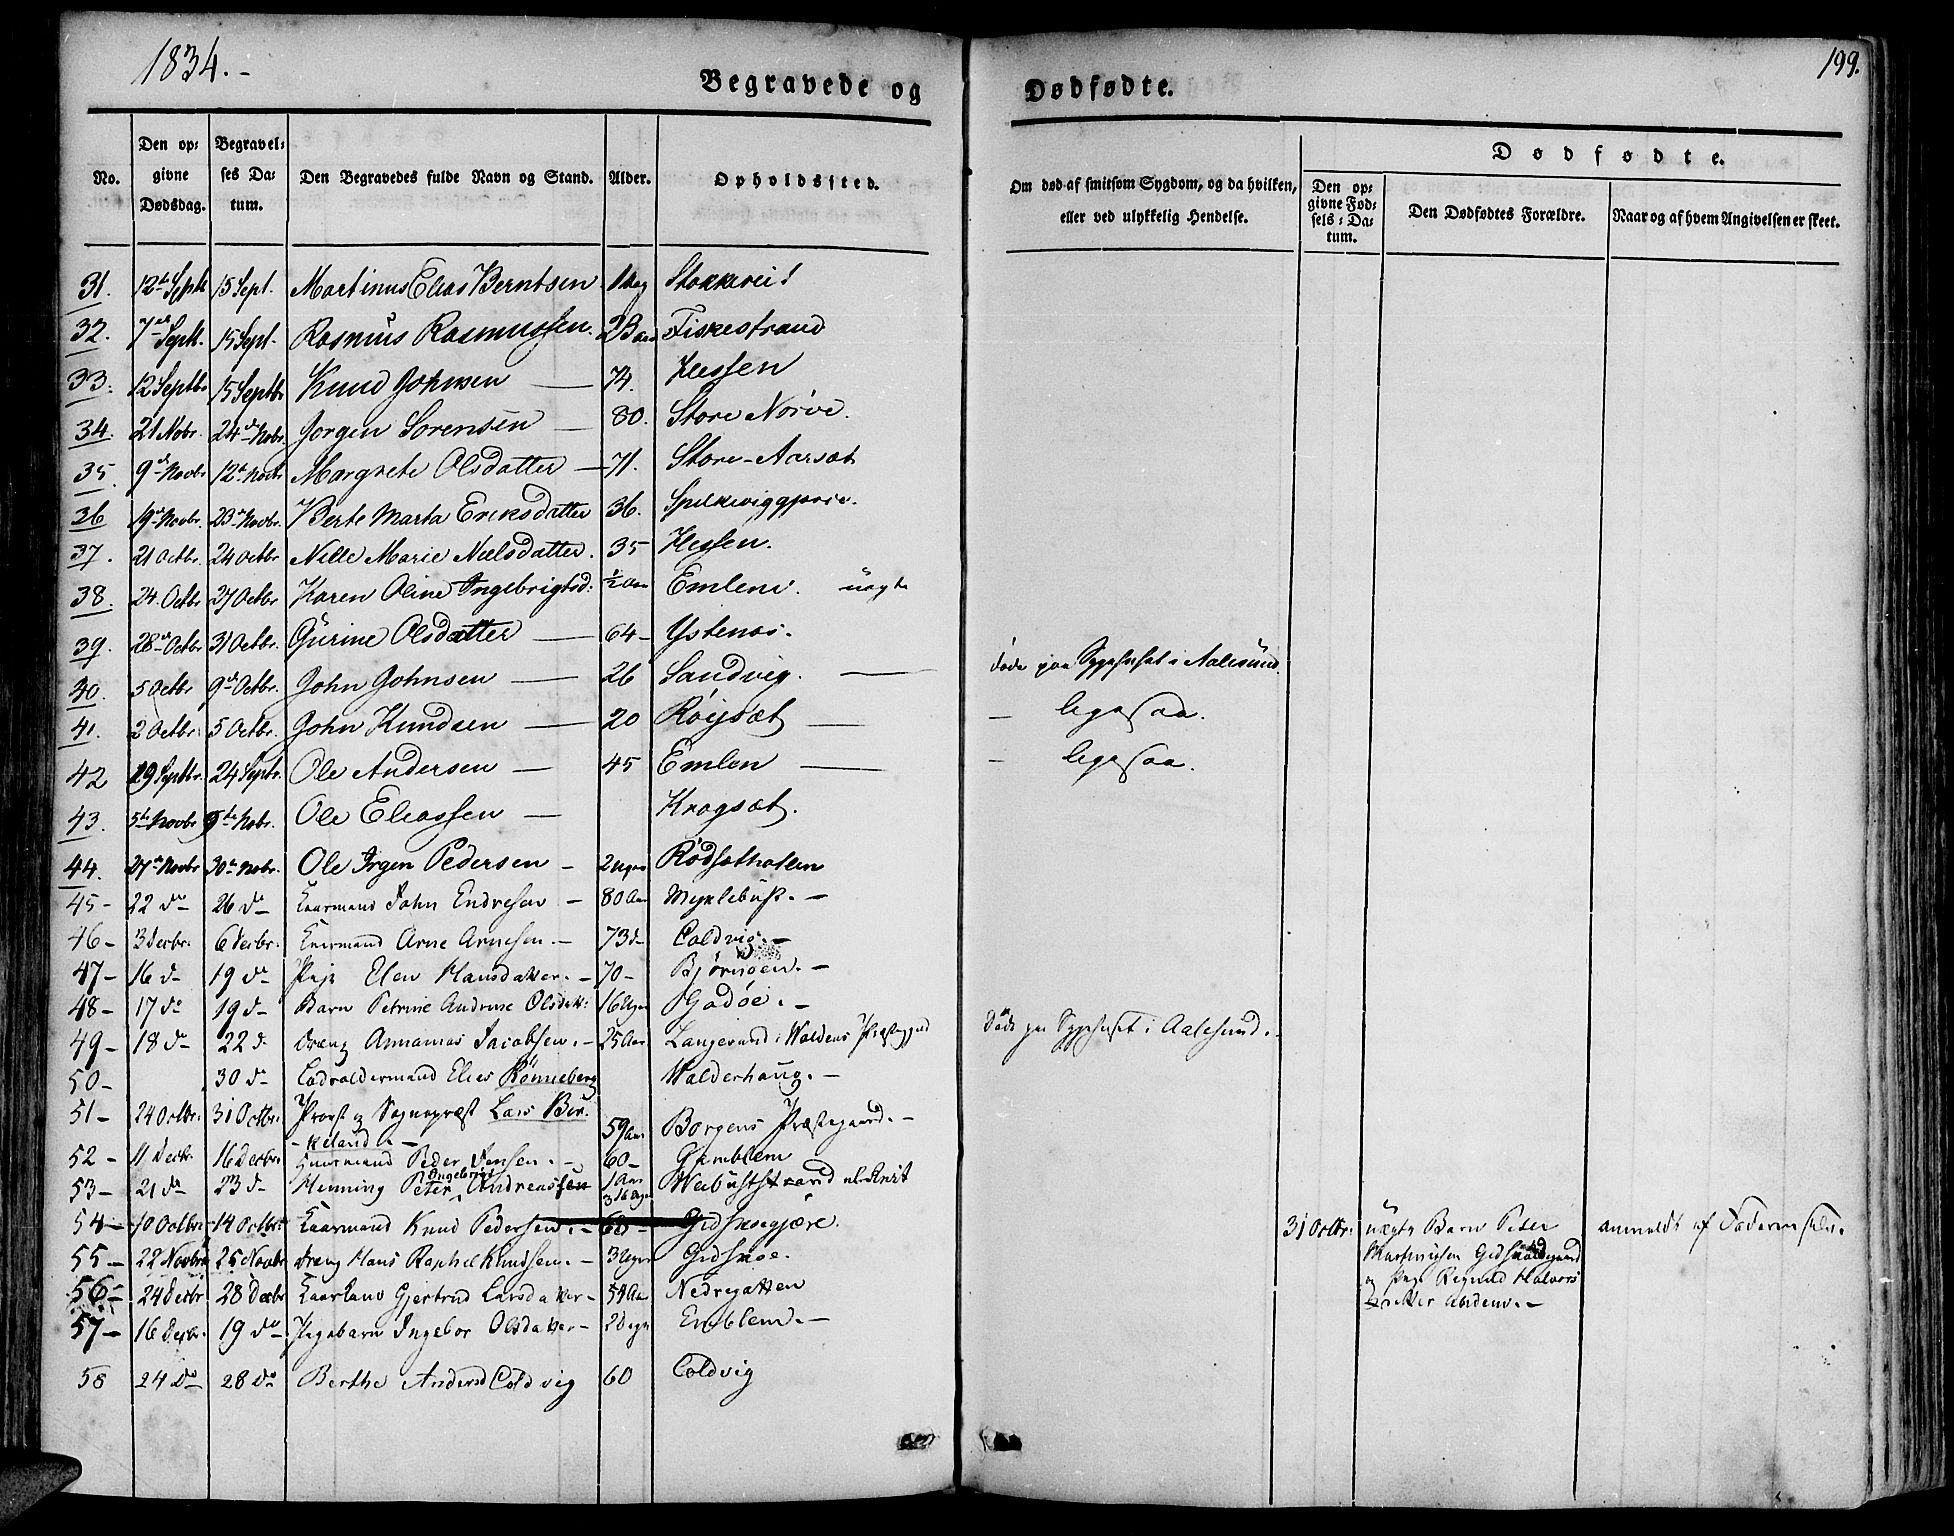 1834.-
199.
Begravede og Dødfødte.
No. Den op- givne Dødsdag. Begravel- ses Da- tum. Den Begravedes fulde Navn og Stand. Alder. Opholdssted. Om død af smitsom Sygdom, og da hvilken, eller ved ulykkelig Hendelse.
Dødfødte.
Den op- givne Fød- sels-Da- tum. Den Dødfødtes Forældre. Naar og af hvem Angivelsen er skeet.
31. 12te Sept 15 Sept. Martinus Elias Berntsen 1 Dag
32. 7de Sept. 15 Sept. Rasmus Rasmussen. Fiskestrand
33. 12 Septbr 15 Septbr Knud Johnsen — 74. Hessen
34. 21 Nobr. 24de Nobr. Jorgen Sorensen — 80. Store Norve.
35. 9de Novbr 12te Novbr Margrete Olsdatter — 71. Store-Aarsæt
36 19de Novbr. 23de Novbr. Berte Marta Eriksdatter 36.
37. 21 Octbr. 24 Octbr. Nille Marie Nielsdatter. 35 Hessen.
38. 24. Octbr 27 Octbr Karen Oline Ingebrigtsd: ½ Aar Emlem. uægte
39. 28de Octbr 31 Octbr. Gurine Olsdatter — 64 - Ystenæs.
40. 5 Octbr 9de Octbr. John Johnsen — 26 Sandvig. — døde paa Sygehuset i Aalesund.
41. 2 Octbr. 5 Octbr. John Knudsen — 20 Röysæt — - ligesaa.
42 19 Septbr. 24 Septr. Ole Andersen — 45 Emlen — - ligesaa.
43. 5te Novbr 9de Nobr. Ole Eliassen — Krogsæt.
44. 27de Novbr 30te Nobr. Ole Jrgen Pedersen - 2 Uger
45 - 22 do 26 do Kaarmand John Endresen - 80 Aar Myklebust. -
46 - 3 Decbr. 6 Decbr. Arne Arnesen. - 73 do Coldvig. -
47 - 16 do 19 do Pige Elen Hansdatter. - 70 - Bjørnøen. -
48 - 17 do 19 do Barn Petrine Andrine Olsdatt: 16 Uger Godøe. -
49 - 18 do 22 do Dreng Annanias Jacobsen. - 25 Aar Langesund i Woldens Præstegjeld Døde paa Sygehuset i Aalesund. -
50 - 30 do Elias Rønneberg Walderhaug. -
51 - 24 Octbr. 31 Octbr. Provst og Sognepræst Lars Bir-
- keland. - 59 Aar Borgens Præstegaard. -
52 - 11 Decbr 16 Decbr. Peder Jensen. - 60 - Gamblem
53 - 21 do 23 do Henning Peter Ingebrigt Andreassen 1 Aar 3
54 - 10 Octbr. 14 Octbr. Kaarmand Knud Pedersen. - 60 - 31 Octbr. uægte Barn Peter anmeldt af Faderen selv.
55 - 22 Novbr. 25 Novbr. Dreng Hans Raphel Knudsen. - 3 Uger Gidskoe.
56 - 24 Decbr 28 Decbr Gjertrud Larsdatter - 54 Aar
57 - 16 Decbr. 19 do Pigebarn Ingebor Olsdatter - 2 Dage Emblem. -
58 24 do 28 do Berthe Andersd Coldvig 60 Coldvig